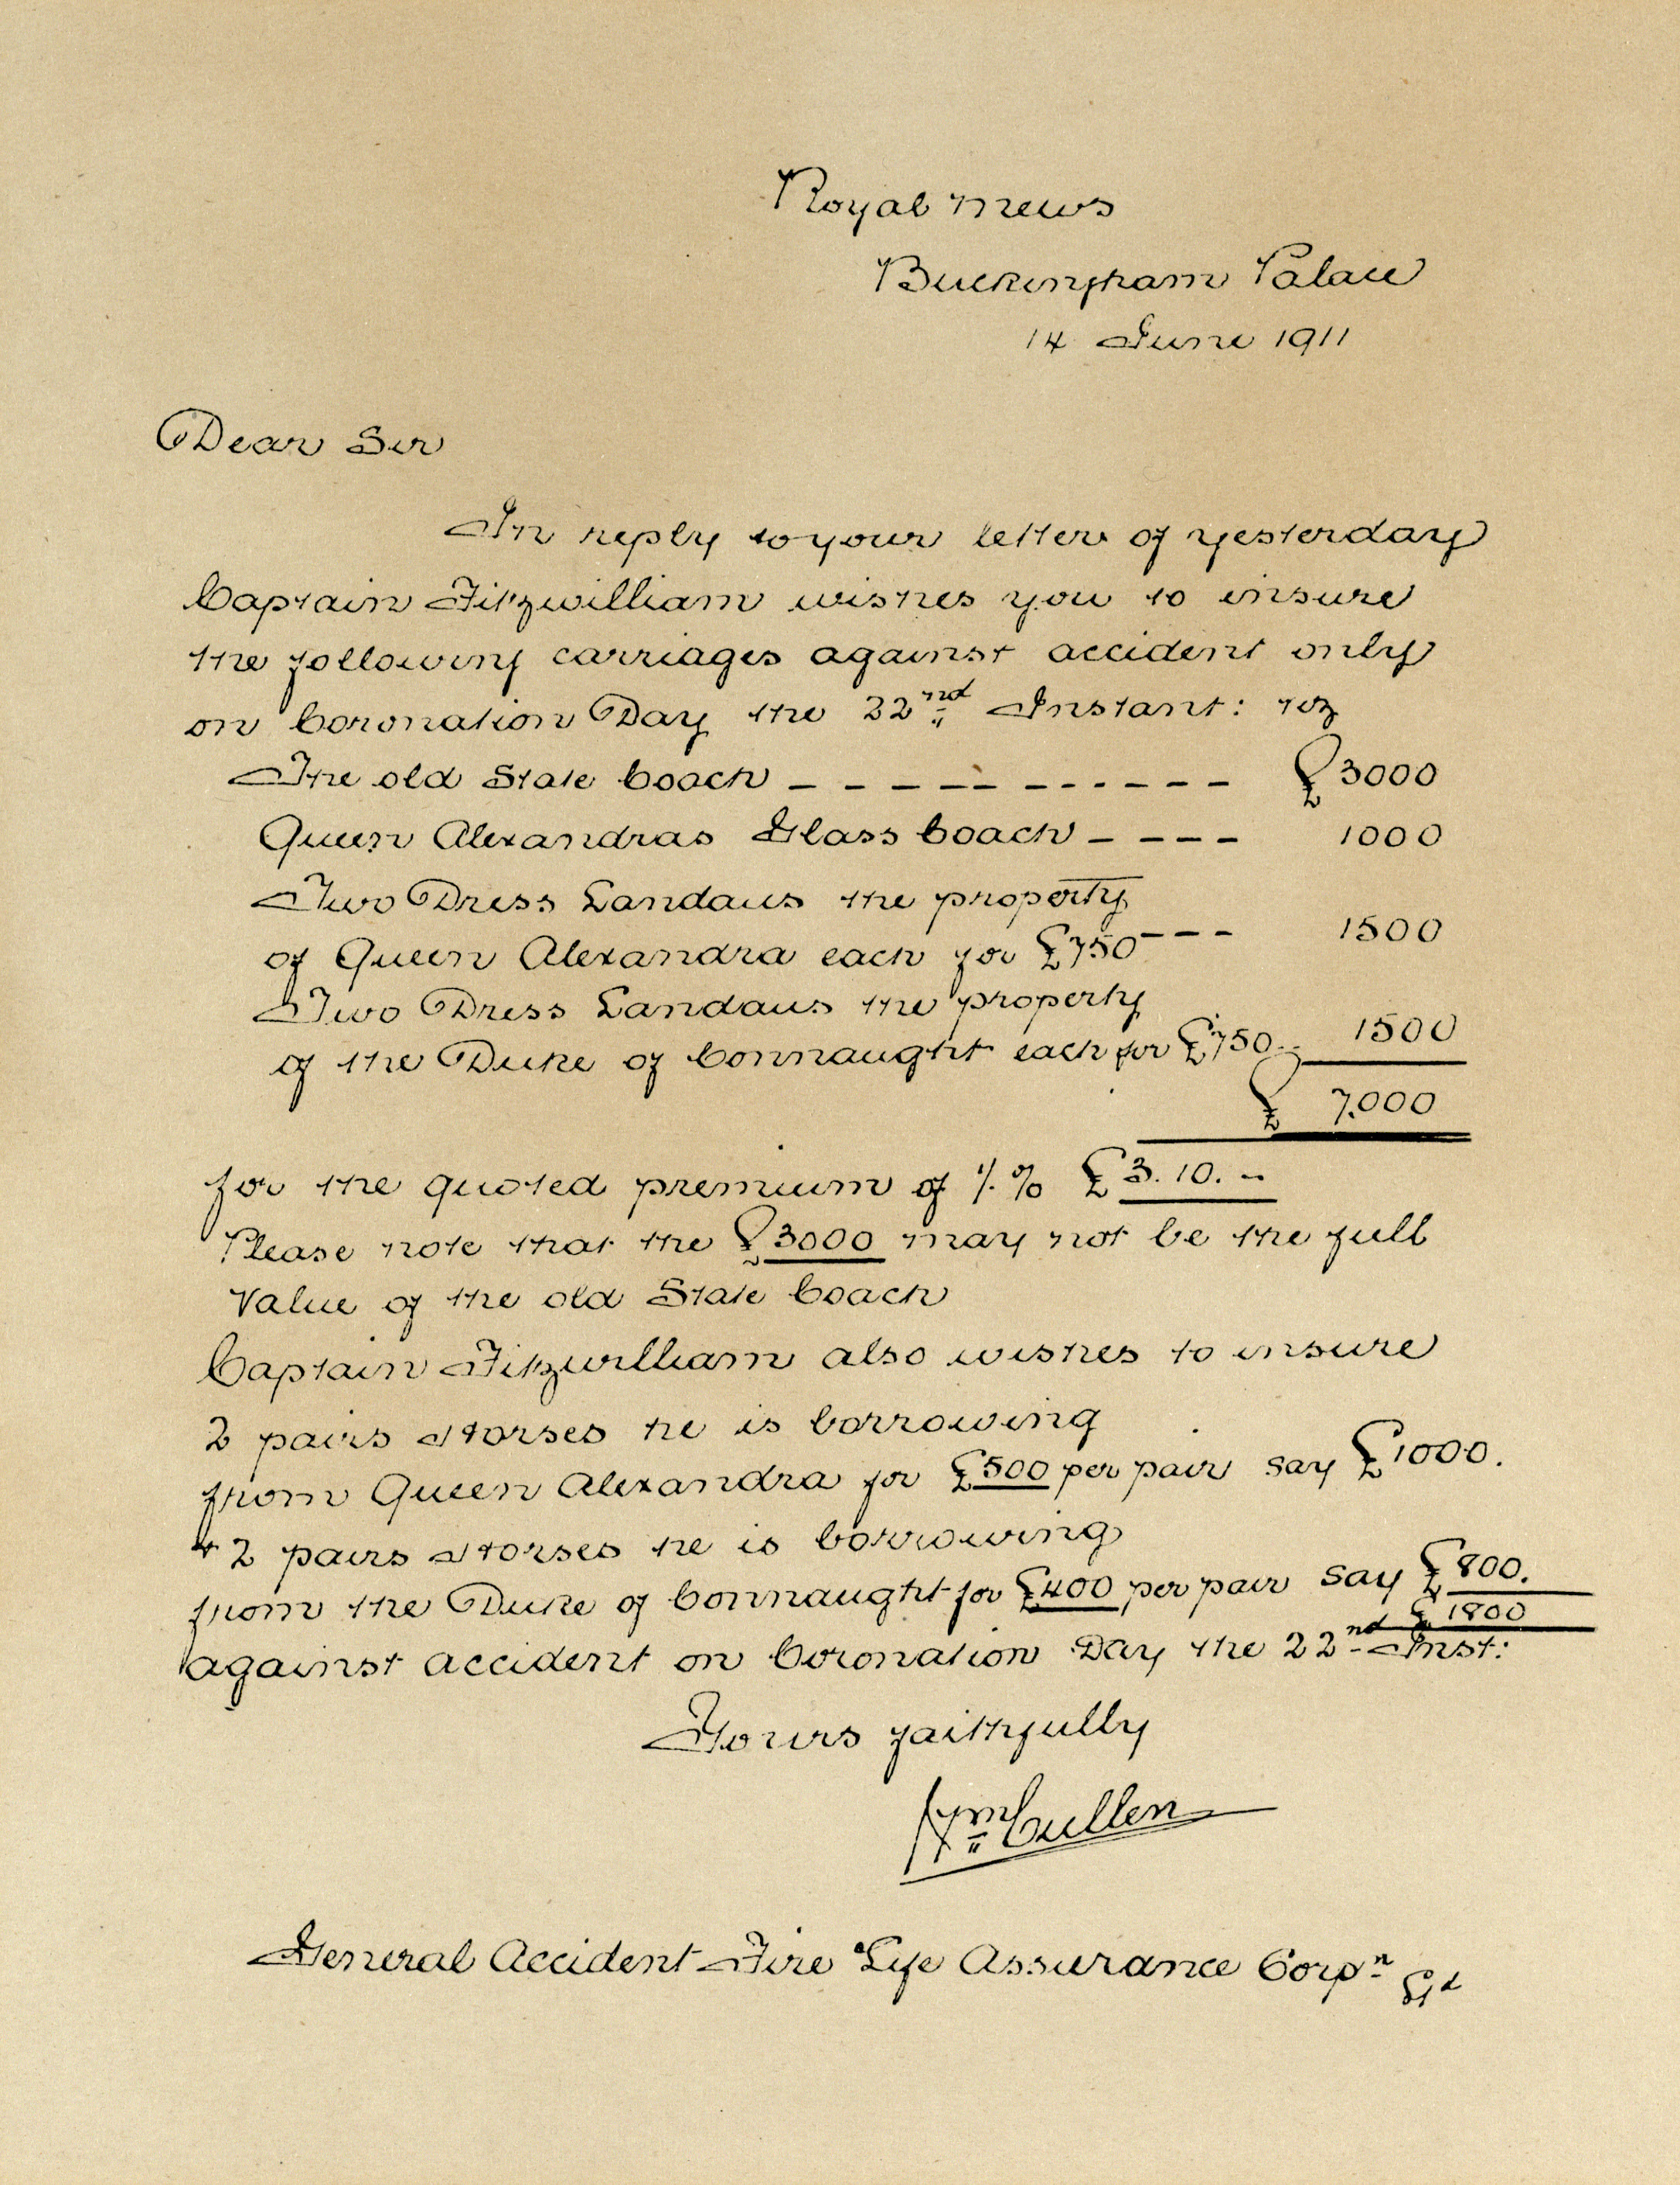 Royal Mews
Buckingham Palace
14 June 1911
Dear Sir
In reply to your letter of yesterday
Captain Fitzwilliam wishes you to insure
the following carriages against accident only
on Coronation Day the 22nd Instant: viz
The old State Coach – – – – – – – – – – – £3000
Queen Alexandras Glass Coach – – – – 1000
Two Dress Landaus the property
of Queen Alexandra each for £750 – – – 1500
Two Dress Landaus the property
of the Duke of Connaught each for £750 .. 1500
£ 7.000
for the quoted premium of 1/- % £3.10. –
Please note that the £3000 may not be the full
Value of the old State Coach
Captain Fitzwilliam also wishes to insure
2 pairs Horses he is borrowing
from Queen Alexandra for £500 per pair say £1000.
& 2 pairs Horses he is borrowing
from the Duke of Connaught for £400 per pair say £800.
£ 1800
against accident on Coronation Day the 22nd Inst:
Yours faithfully
Wm Cullen
General Accident Fire & Life Assurance Corpn Ltd